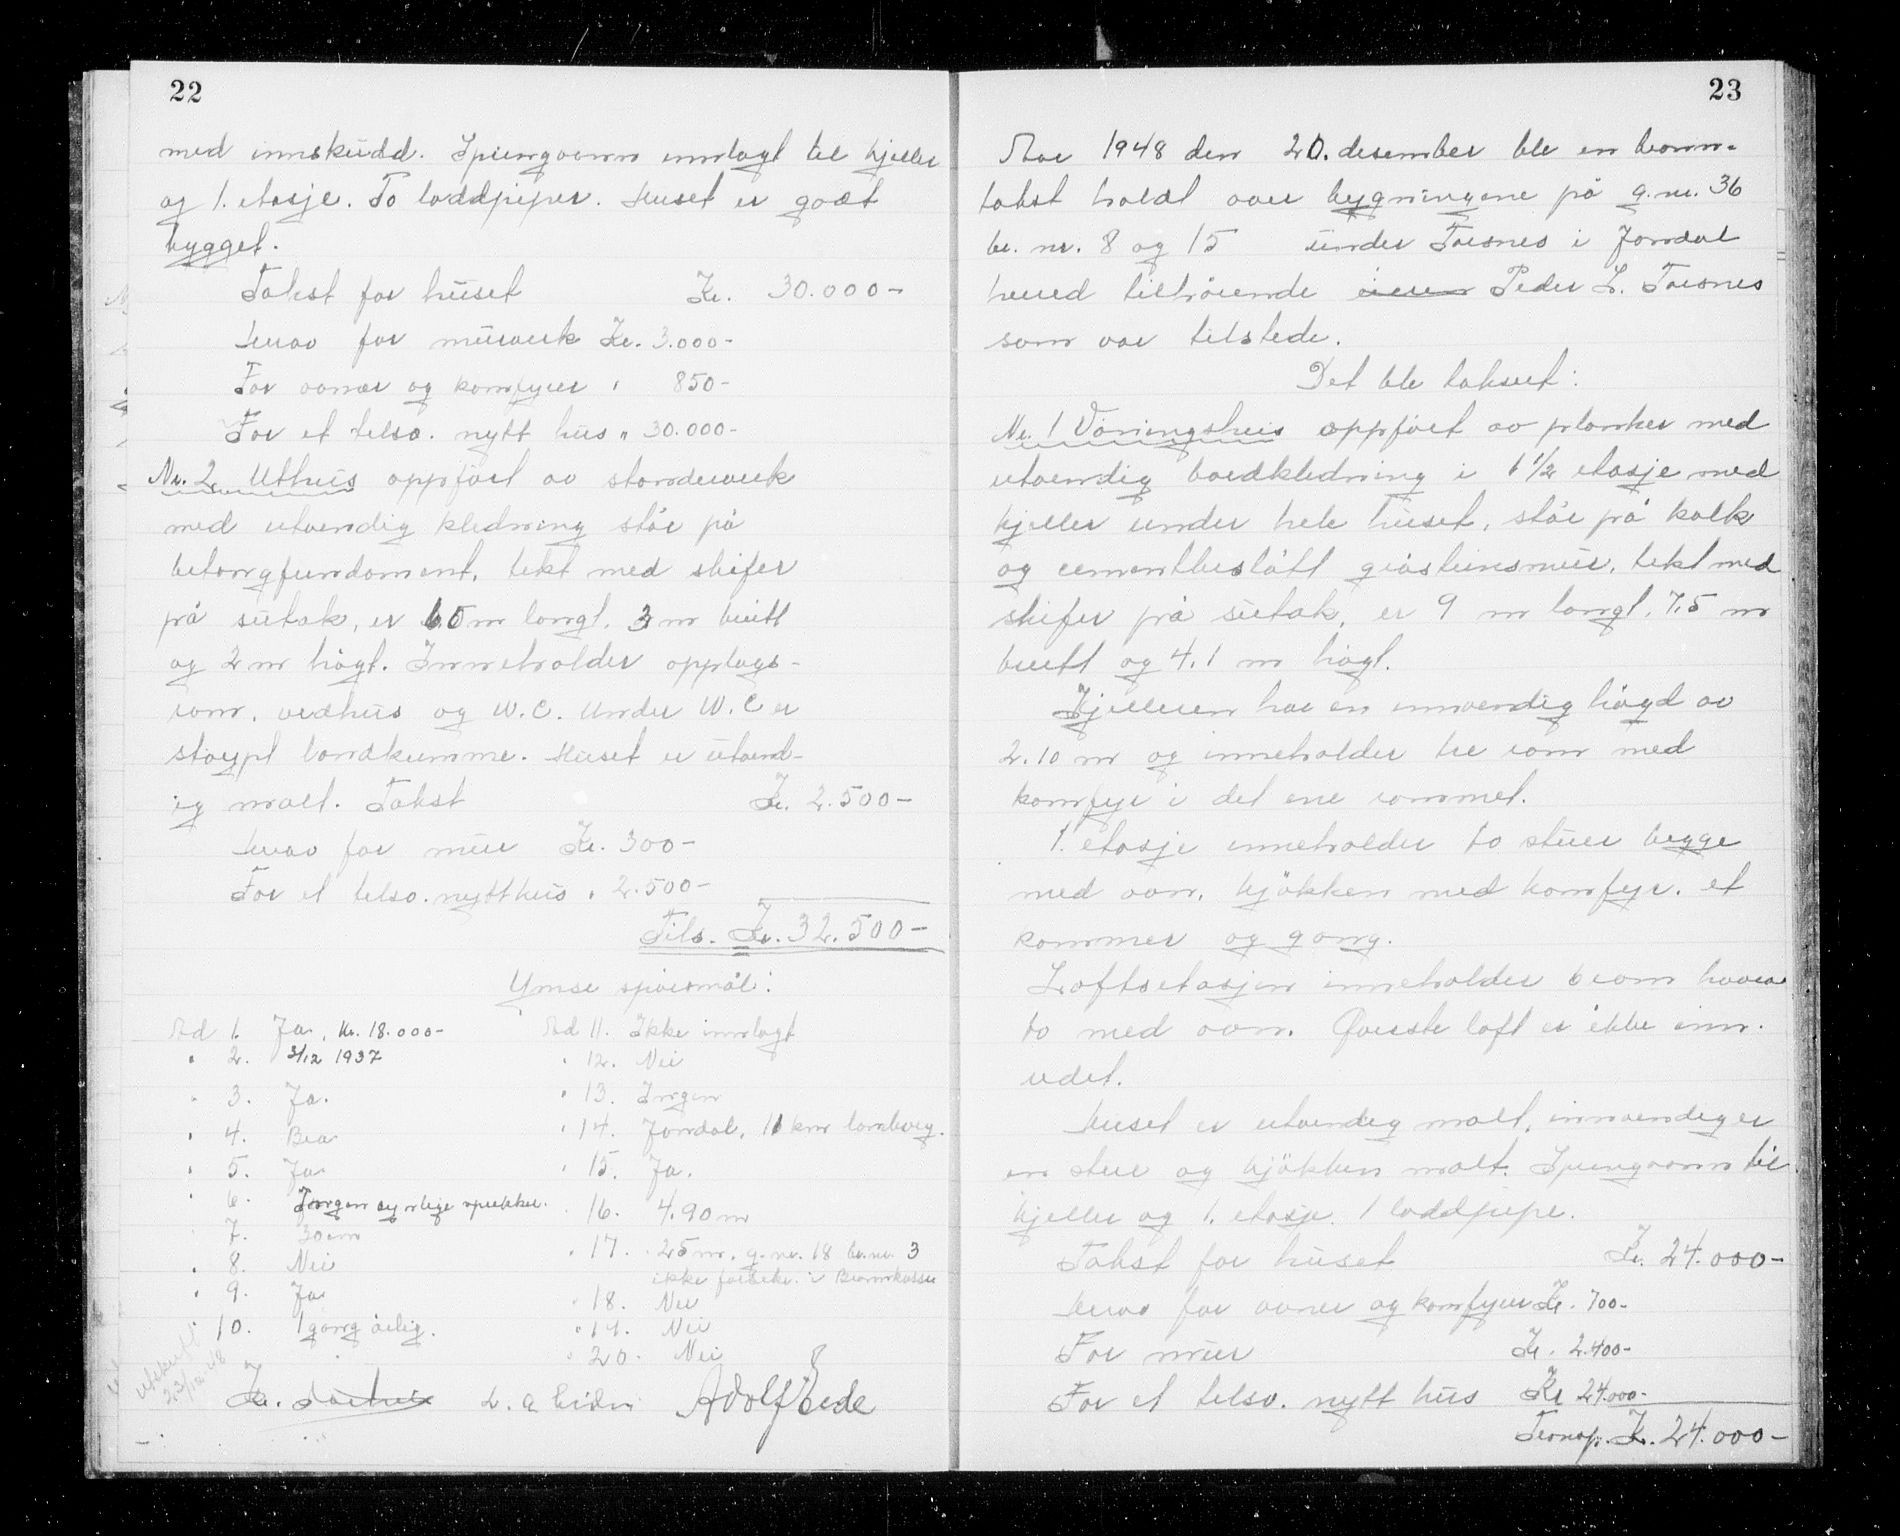 22
med innskudd. Springvann innlagt til kjeller
og 1. etasje. To loddpiper. Huset er godt
bygget.
Takst for huset Kr. 30.000-
Herav for murverk Kr. 3.000-
For ovner og komfyrer " 850-
For et tilsv. nytt hus " 30.000-
Nr. 2 Uthus oppfört av standerverk
med utvendig kledning står på
betongfundament, tekt med skifer
på sutak, er 6.5 m langt, 3 m breitt
og 2 m högt. Inneholder opplags-
rom, vedhus og W.C. Under W.C er
stöypt landkumme. Huset er utvend-
ig malt. Takst Kr. 2.500-
Herav for mur Kr. 300-
For et tilsv. nytt hus " 2.500-
Tils. Kr. 32.500-
Ymse spörsmål:
Ad 1. Ja, Kr. 18.000-
" 2. 3/12 1937
" 3. Ja.
" 4. Bra
" 5. Ja
" 6. Ingen synlige sprekker.
" 7. 30 cm
" 8. Nei
" 9. Ja
" 10. 1 gang årlig.
Ad 11. Ikke innlagt
" 12. Nei
" 13. Ingen
" 14. Jondal, 11 km landveg.
" 15. Ja.
" 16. 4.90 m
" 17. 25 m, g.nr. 18 br.nr. 3
ikke forsikr. i Brannkasse
" 18. Nei
" 19. Nei
" 20. Nei
Utskrift
23/12-48
Adolf Eide
23
Aar 1948 den 20. desember ble en brann-
takst holdt over bygningene på g.nr. 36
br. nr. 8 og 15 under Torsnes i Jondal
herred tilhörende Peder L. Torsnes
som var tilstede.
Det ble taksert:
Nr. 1 Våningshus oppfört av planker med
utvendig bordkledning i 1 1/2 etasje med
kjeller under hele huset, står på kalk
og cementbeslått gråsteinsmur, tekt med
skifer på sutak, er 9 m langt, 7,5 m
breitt og 4.1 m högt.
Kjelleren har en innvendig högd av
2.10 m og inneholder tre rom med
komfyr i det ene rommet.
1. etasje inneholder to stuer begge
med ovn, kjökken med komfyr, et
kammer og gang.
Loftsetasjen inneholder 6 rom hvorav
to med ovn. Överste loft er ikke inn-
redet.
Huset er utvendig malt, innvendig er
en stue og kjökken malt. Springvann til
kjeller og 1. etasje. 1 loddpipe.
Takst for huset Kr. 24.000-
Herav for ovner og komfyrer Kr. 700-
For mur Kr. 2.400-
For et tilsv. nytt hus Kr 24.000-
Transp. Kr. 24.000-